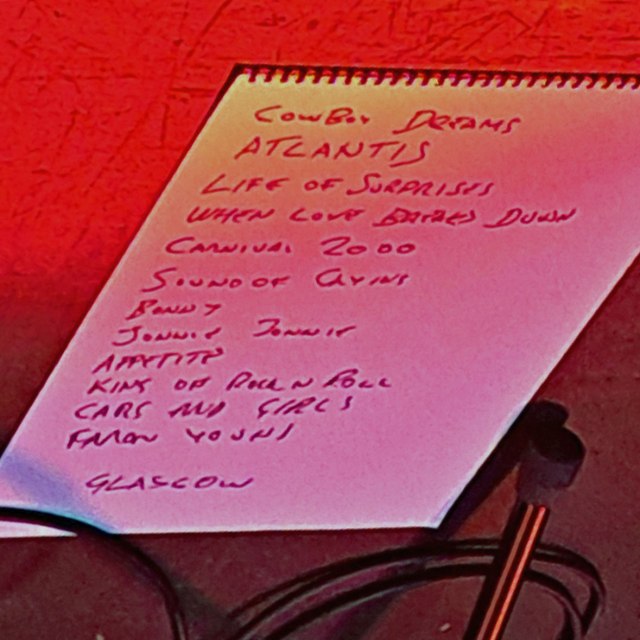 COWBOY DREAMS
ATLANTIS
LIFE OF SURPRISES
WHEN LOVE BREAKS DOWN
CARNIVAL 2000
SOUND OF CRYING
BONNY
JOHNNY JOHNNY
APPETITE
KING OF ROCK N ROLL
CARS AND GIRLS
FARON YOUNG
GLASGOW